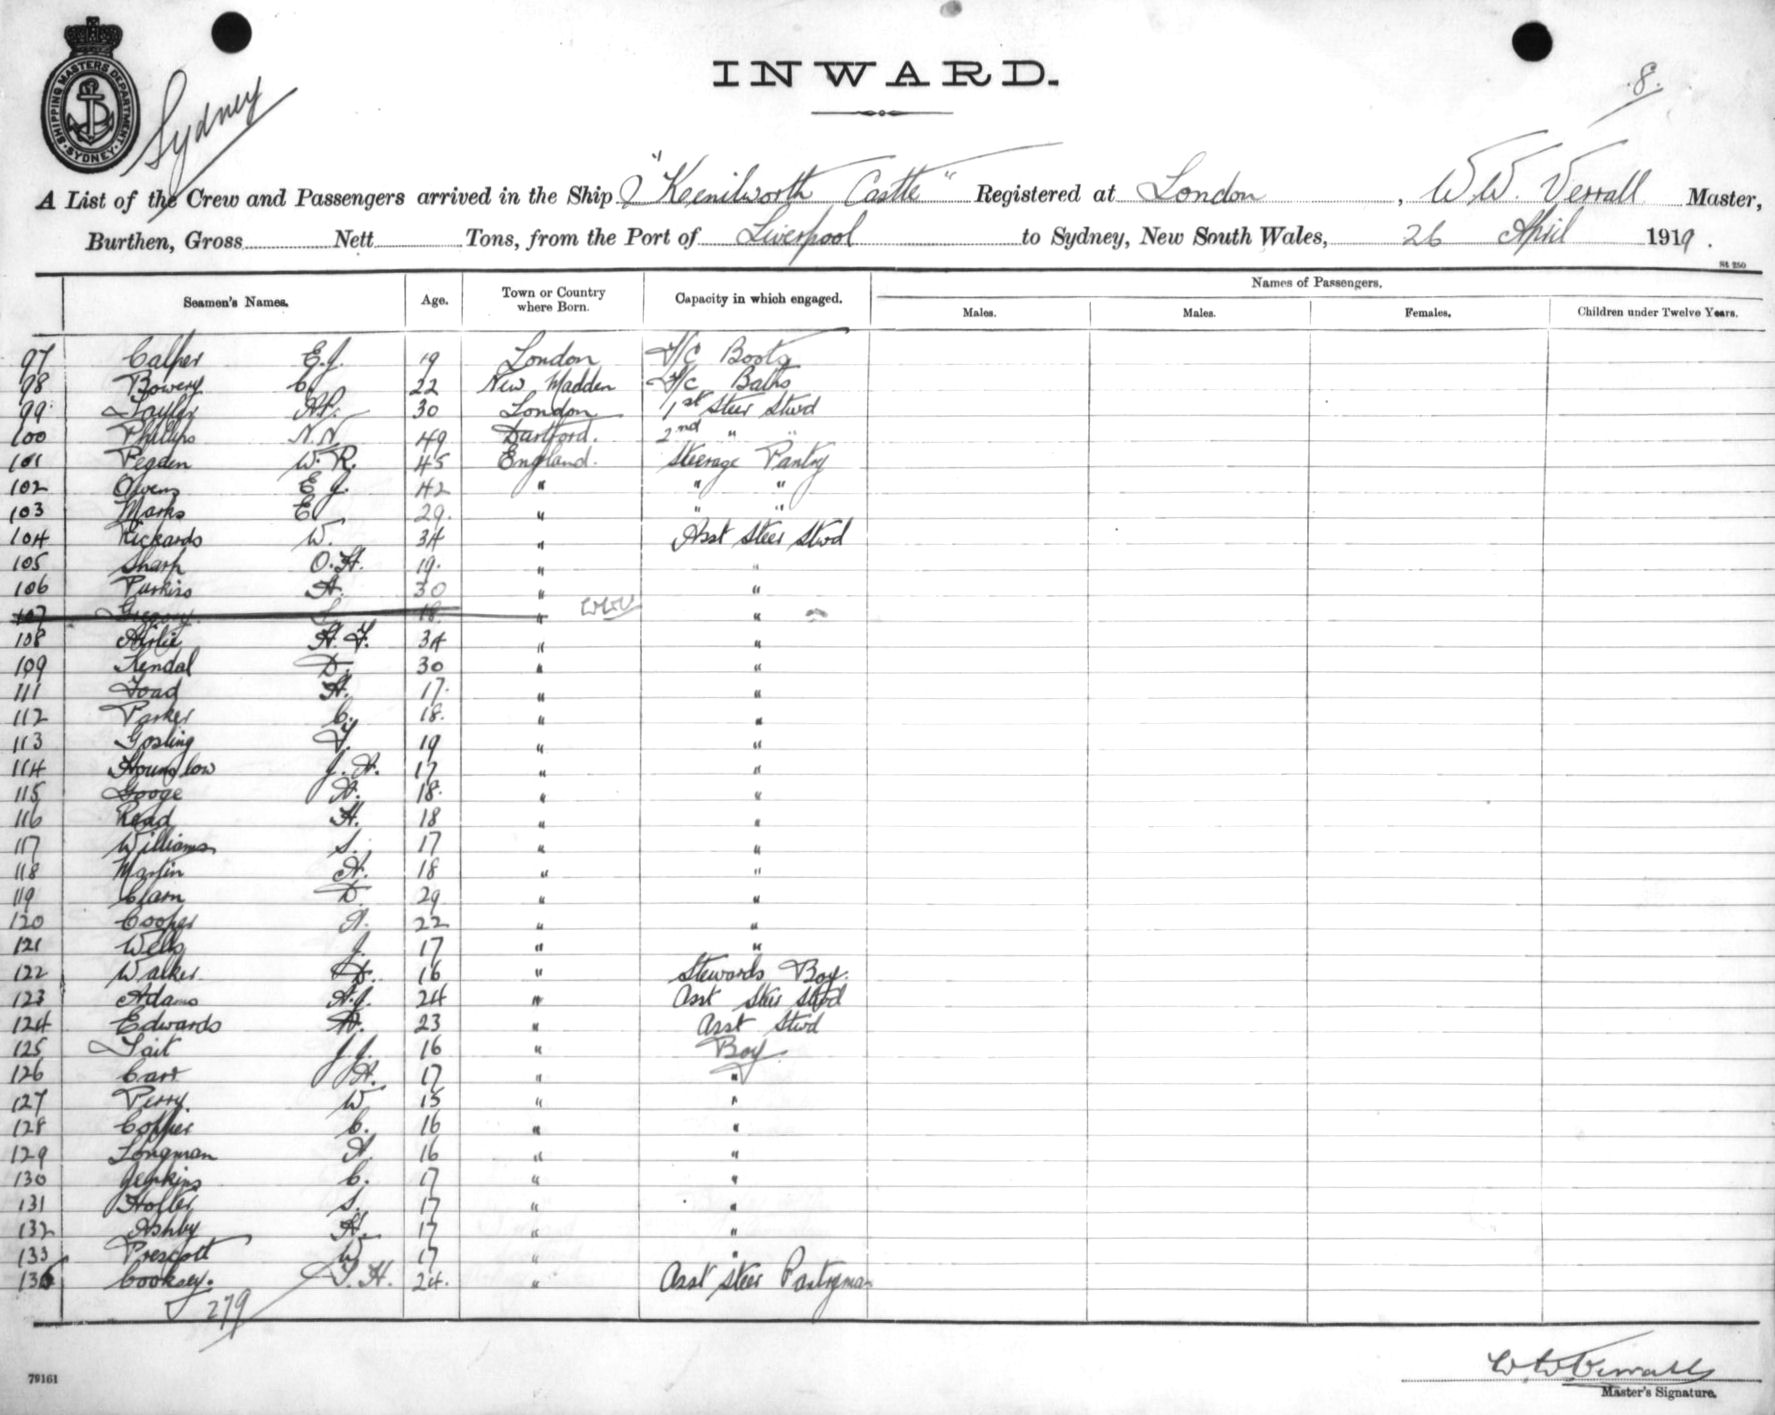 SHIPPING MASTERS DEPARTMENT
SYDNEY
Sydney
INWARD.
8.
A List of the Crew and Passengers arrived in the Ship "Kenilworth Castle" Registered at London, W W. Verrall Master,
Burthen, Gross Nett Tons, from the Port of Liverpool to Sydney, New South Wales, 26 April 1919.
St 250
Seamen's Names. Age. Town or Country where Born. Capacity in which engaged. Names of Passengers.
Males. Males. Females. Children under Twelve Years.
97 E.J. 19 London Boots
98 Bowery C. 22 New Madden Baths
99 30 London 1st Steer Stwd
100 Phillips N.N. 49 Dartford. 2nd " "
101 Pegden W.R. 45 England. Steerage Pantry
102 Owens E J. 42 " " "
103 Marks E 29. " " "
104 Rickards W. 34 " Asst Steer Stwd
105 Sharp O.H. 19. " "
106 Parkins A. 30 " "
107 Gregory. 18. " WWV "
108 Airlie 34 " "
109 Kendal D. 30 " "
111 Toad A. 17. " "
112 Parker C. 18. " "
113 Gosling 19 " "
114 Hounslow J.A. 17 " "
115 Googe A. 18. " "
116 Read H. 18 " "
117 Williams S. 17 " "
118 Martin A. 18 " "
119 D. 29 " "
120 Cooper A. 22 " "
121 Wells J. 17 " "
122 Walker D. 16 " Stewards Boy.
123 Adams A.J. 24 " Asst Steer Stwd
124 Edwards A. 23 " Asst Stwd
125 Tait J.J. 16 " Boy
126 Carr A. 17 " "
127 Perry. W 15 " "
128 C. 16 " "
129 Longman A. 16 " "
130 Jenkins C. 17 " "
131 S. 17 " "
132 Ashby A. 17 " "
133 Prescott W 17 " "
Cooksey. H. 24. " Asst Steer Pantryman
279
W.W. Verrall
79161
Master's Signature.